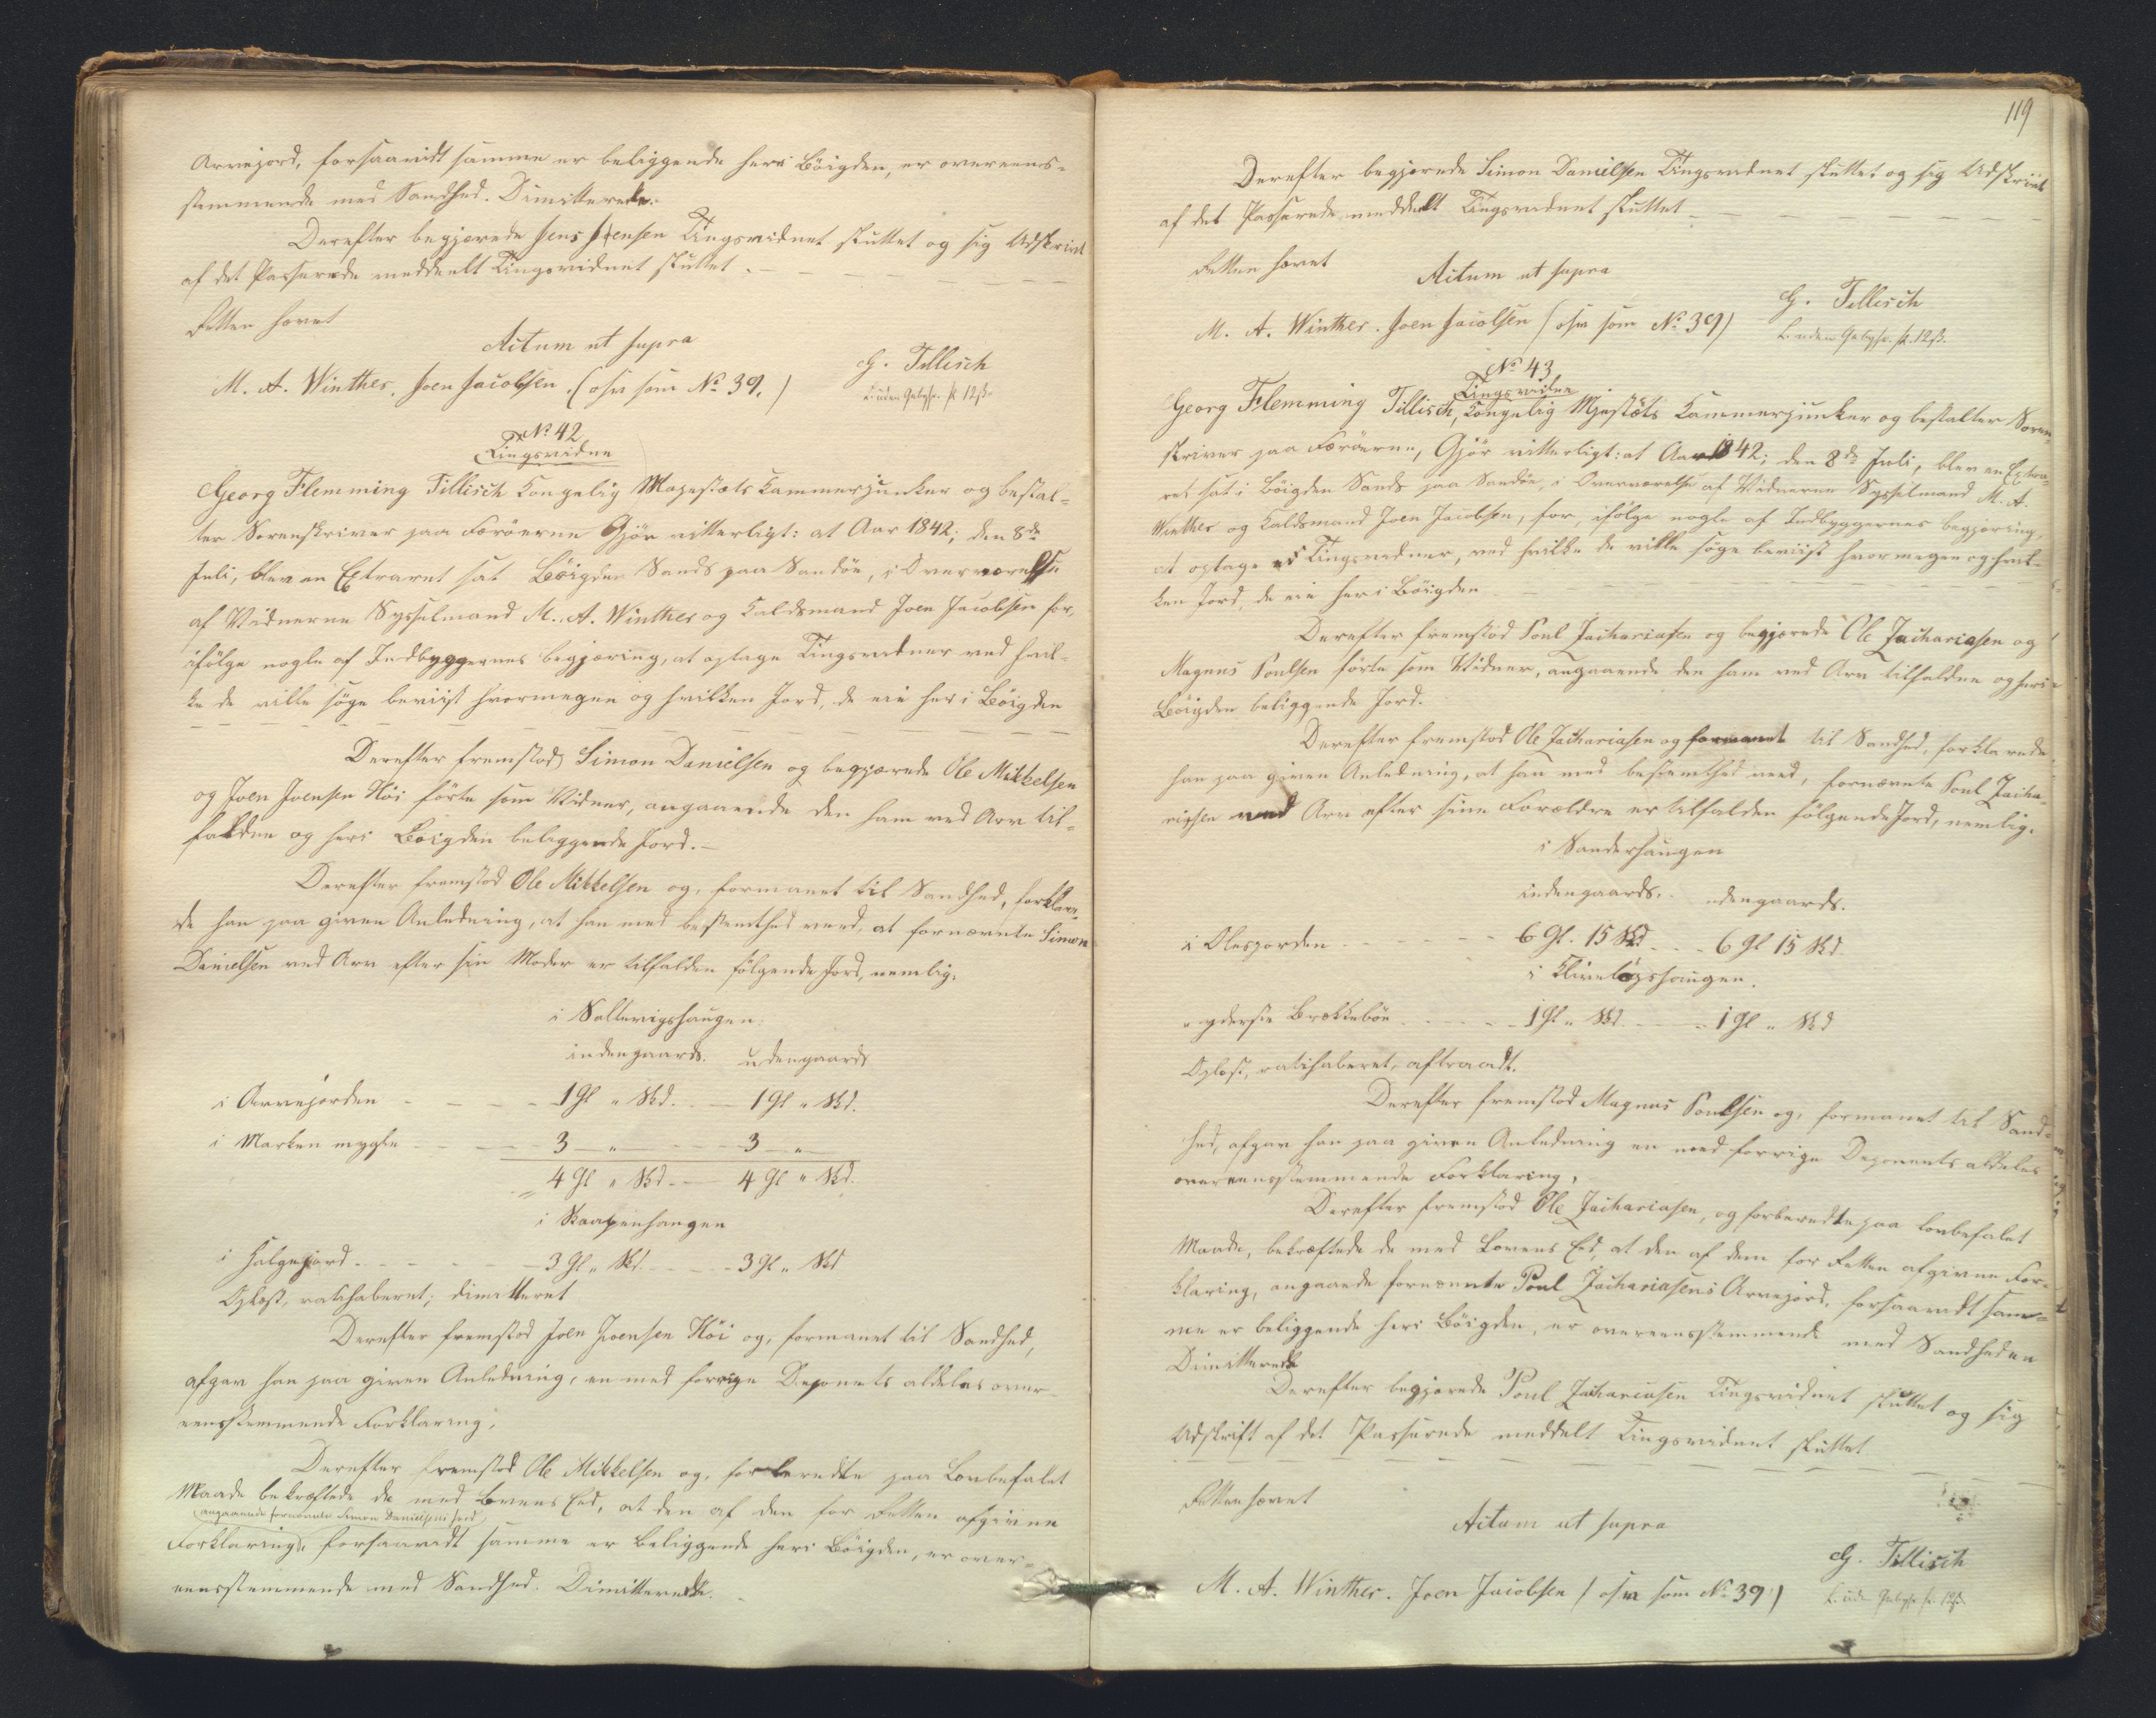 Arvejord, forsaavidt samme er beliggende heri Böigden, er overeens-
stemmende med Sandhed. Dimitterede.
Derefter begjærede Jens Joensen Tingsvidnet sluttet og sig Udskrivt
af det Passerede meddeelt Tingsvidnet sluttet.
Retten hævet
Actum ut supra
G. Tillisch
M. A. Winther. Joen Jacobsen. (osv som No 39.)
No 42
Tingsvidne
Georg Flemming Tillisch Kongelig Majestæts Kammerjunker og bestal-
ter Sorenskriver paa Færöerne Gjör vitterligt: at Aar 1842; den 8de
Juli, blev en Extraret sat Böigden Sands paa Sandöe, i Overværelse
af Vidnerne Sysselmand M. A. Winther og Kaldsmand Joen Jacobsen for,
ifölge nogle af Indbyggernes begjæring, at optage Tingsvidner ved hvil-
ke de ville söge beviist hvormegen og hvilken Jord, de eie her i Böigden
Derefter fremstod Simon Danielsen og begjærede Ole Mikkelsen
og Joen Joensen Höi förte som Vidner, angaaende den ham ved Arv til-
falden og heri Böigden beliggende Jord.
Derefter fremstod Ole Mikkelsen og, formanet til Sandhed, forklare-
de han paa given Anledning, at han med bestemthed veed, at fornævnte Simon
Danielsen ved Arv efter sin Moder er tilfalden fölgende Jord, nemlig,
i Saltevigshaugen
indengaards. udengaards
i Arvejorden 1 Gl " Skd. 1 Gl " Skd.
i Marken mygle 3 " 3 "
4 Gl " Skd. 4 Gl " Skd.
i Skaalpenhaugen
i Halgejord 3 Gl " Skd. 3 Gl " Skd
Oplæst, ratihaberet; dimitteret
Derefter fremstod Joen Joensen Höi og, formanet til Sandhed,
afgav han paa given Anledning, en med forrige Deponents aldeles over-
eensstemmende Forklaring.
Derefter fremstod Ole Mikkelsen og, forberedte paa Lovbefalet
Maade bekræftede de med Lovens Eed, at den af dem for Retten afgivne
angaaende fornævnte Simon Danielsens Jord
Forklaring, forsaavidt samme er beliggende heri Böigden, er over-
eensstemmende med Sandhed. Dimitterede.
119
Derefter begjærede Simon Danielsen Tingsvidnet sluttet og sig Udskrivt
af det Passerede meddeelt Tingsvidnet sluttet
Retten hævet
Actum ut supra
G. Tillisch
M. A. Winther. Joen Jacobsen (osv som No 39)
No 43
Tingsvidne
Georg Flemming Tillisch, Kongelig Mjestæts Kammerjunker og bestalter Soren-
skriver paa Færöerne, Gjör vitterligt: at Aar 1842; den 8de Juli, blev en Extra-
ret sat i Böigden Sands paa Sandöe, i Overværelse af Vidnerne Sysselmand M. A.
Winther og Kaldsmand Joen Jacobsen, for ifölge nogle af Indbyggernes begjæring,
at optage Tingsvidner, ved hvilke de ville söge beviist hvormegen og hvil-
ken Jord, de eie heri Böigden
Derefter fremstod Poul Zachariasen og begjærede Ole Zachariasen og
Magnus Poulsen förte som Vidner, angaaende den ham ved Arv tilfaldne og heri
Böigden beliggende Jord.
Derefter fremstod Ole Zachariasen og formanet til Sandhed, forklarede
han paa given Anledning, at han med bestemthed veed, fornævnte Poul Zacha-
riasen ved Arv efter sine Forældre er tilfalden fölgende Jord, nemlig.
i Sanderhaugen
indengaards. udengaards.
i Olesjorden 6 Gl. 15 Skd. 6 Gl 15 Skd.
" yderste Brekkeböe 1 Gl " Skd. 1 Gl " Skd
Oplæst, ratihaberet, aftraadt.
Derefter fremstod Magnus Poulsen og, formanet til Sand-
hed, afgav han paa given Anledning en med forrige Deponents aldeles
overeensstemmende Forklaring,
Derefter fremstod Ole Zachariasen, og forberedte paa lovbefalet
Maade, bekræftede de med Lovens Eed, at den af dem for Retten afgivne For-
klaring, angaaende fornævnte Poul Zachariasens Arvejord, forsaavidt sam-
me er beliggende heri Böigden, er overeensstemmende med Sandheden
Dimitterede
Derefter begjærede Poul Zachariasen Tingsvidnet sluttet og sig
Udskrift af det Passerede meddelt Tingsvidnet sluttet
Retten hævet
Actum ut supra
G. Tillisch
M. A. Winther. Joen Jacobsen (osv som No 39)